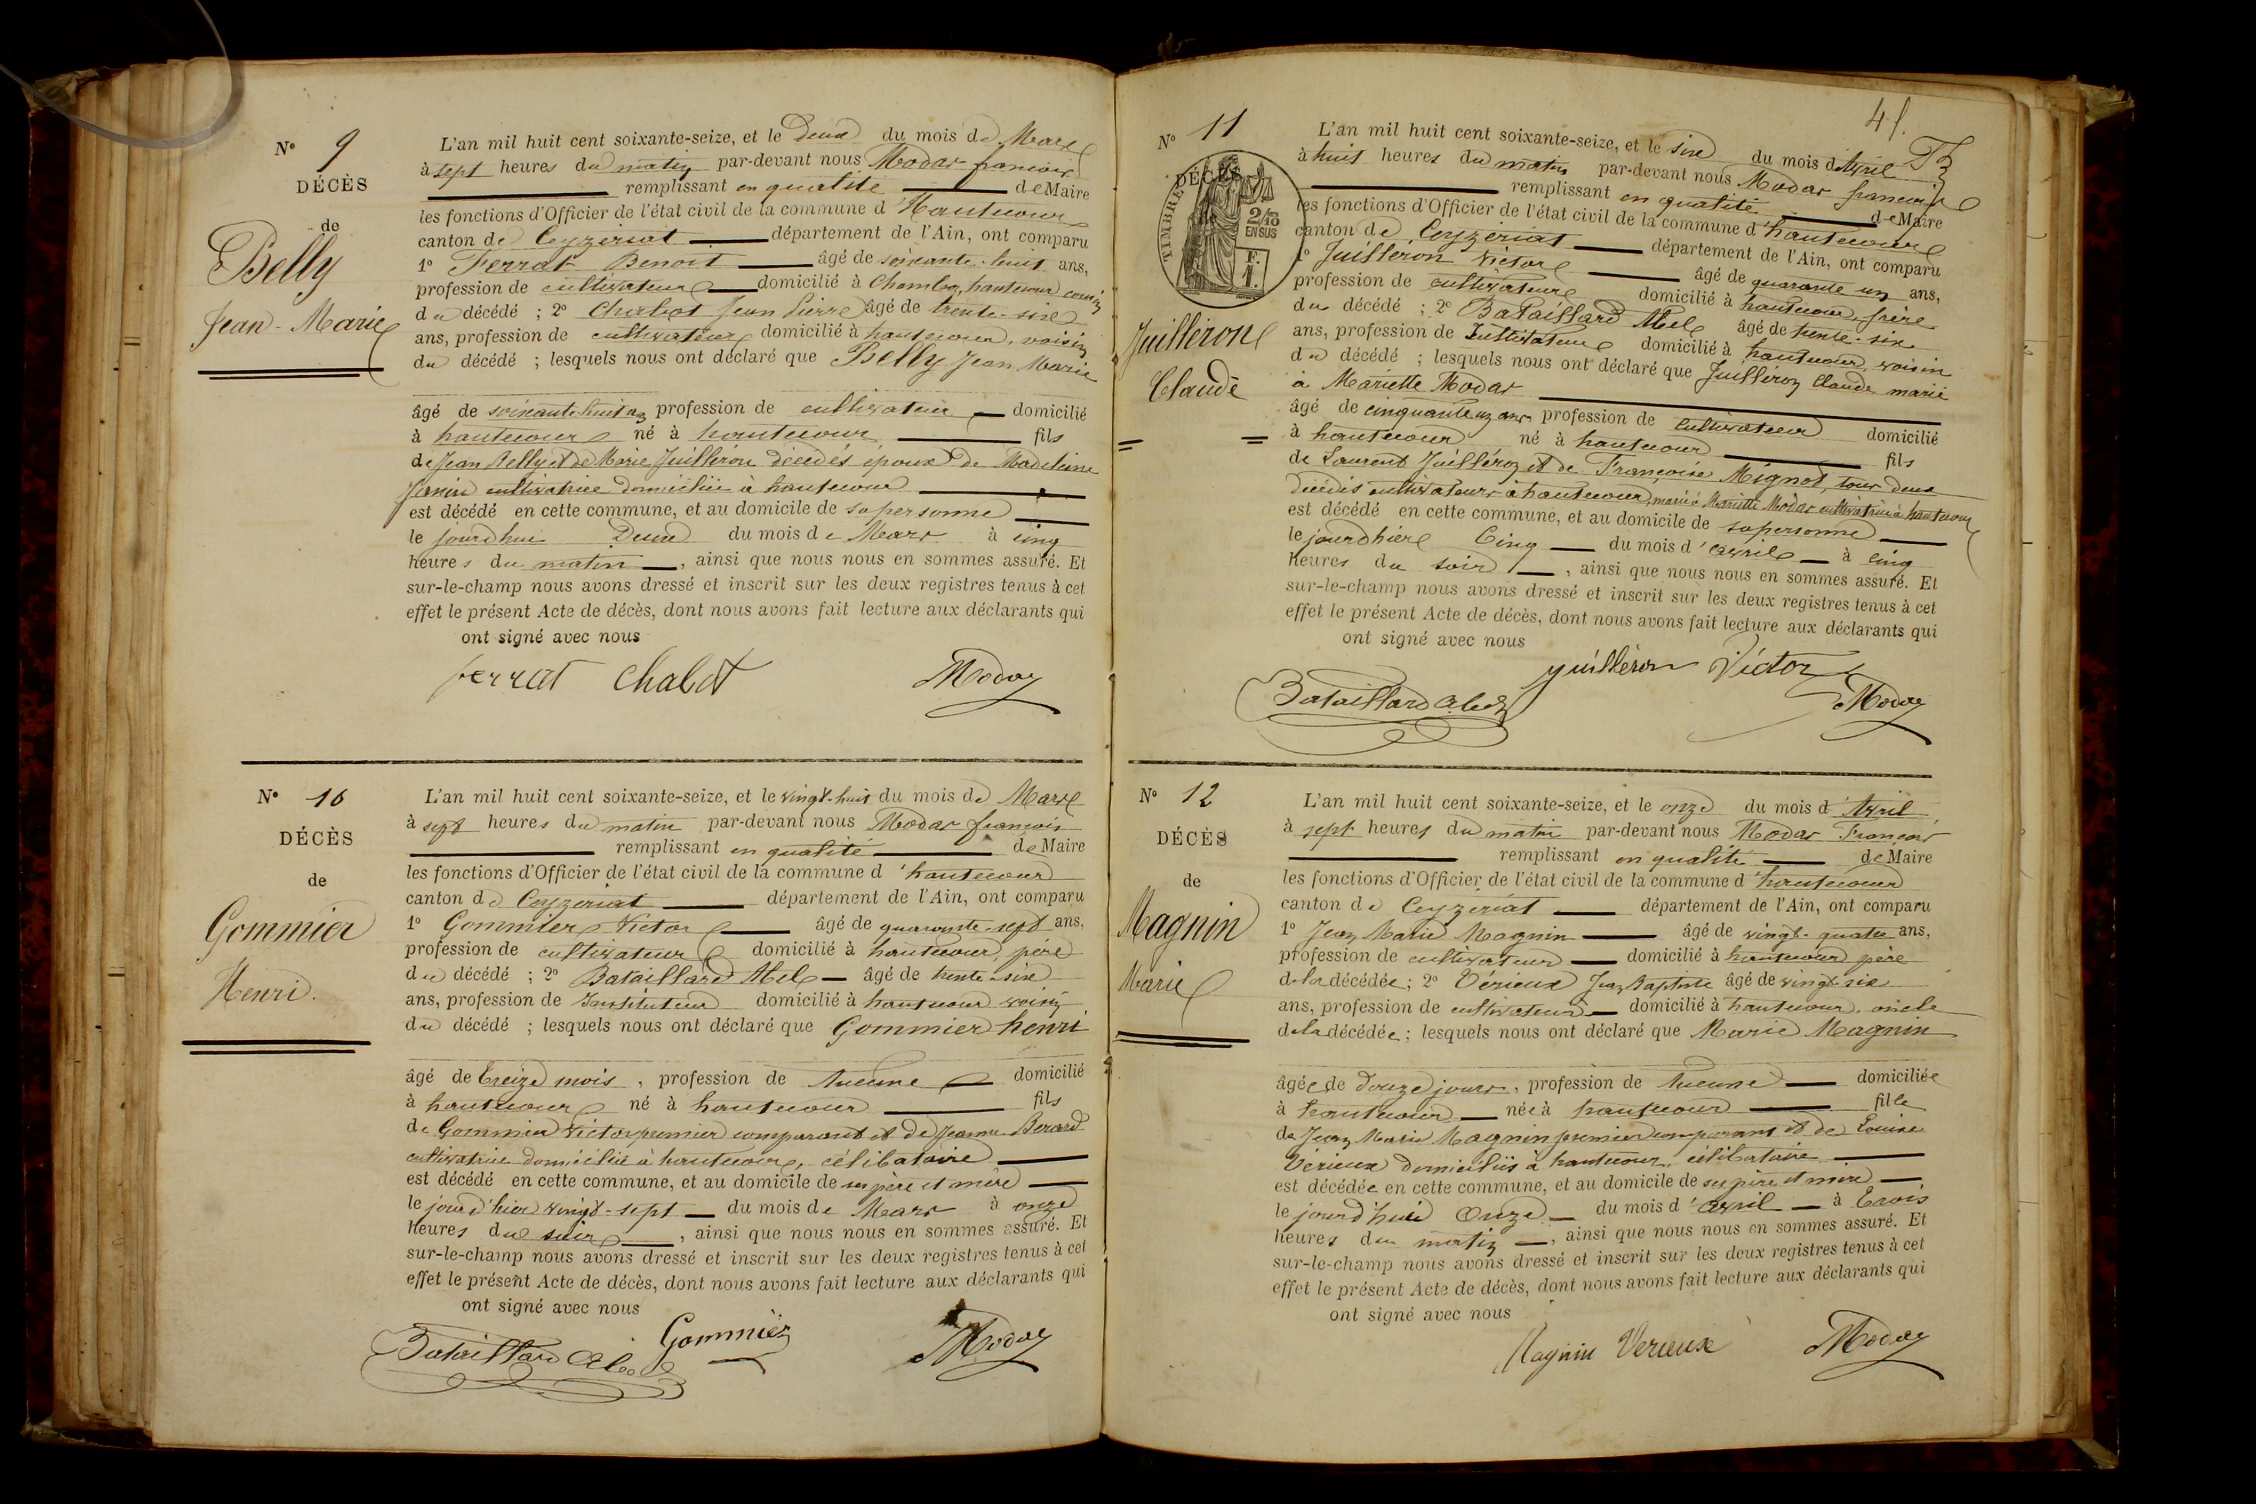 N° 9
DÉCÈS
de
Belly
Jean-Marie
L'an mil huit cent soixante-seize, et le Deux du mois de Mars
à sept heures du matin par-devant nous Modas françois
remplissant en qualité de Maire
les fonctions d'Officier de l'état civil de la commune d'Hautecour
canton de Ceyzériat département de l'Ain, ont comparu
1° Ferrat Benoit âgé de soixante-huit ans,
profession de cultivateur domicilié à Chambo, hautecour cousin
du décédé ; 2° Chabot Jean Pierre âgé de trente-six
ans, profession de cultivateur domicilié à hautecour, voisin
du décédé ; lesquels nous ont déclaré que Belly Jean Marie
âgé de soixante huit ans profession de cultivateur domicilié
à hautecour né à hautecour fils
de Jean Belly et de Marie Juilléron décédés époux de Madeleine
Janin cultivatrice domiciliée à hautecour
est décédé en cette commune, et au domicile de sa personne
le jourdhui Deux du mois de Mars à cinq
heures du matin, ainsi que nous nous en sommes assuré. Et
sur-le-champ nous avons dressé et inscrit sur les deux registres tenus à cet
effet le présent Acte de décès, dont nous avons fait lecture aux déclarants qui
ont signé avec nous
ferrat Chabot Modas
N° 10
DÉCÈS
de
Gommier
Henri.
L'an mil huit cent soixante-seize, et le vingt-huit du mois de Mars
à sept heures du matin par-devant nous Modas françois
remplissant en qualité de Maire
les fonctions d'Officier de l'état civil de la commune d'hautecour
canton de Ceyzériat département de l'Ain, ont comparu
1° Gommier Victor âgé de quarante-sept ans,
profession de cultivateur domicilié à hautecour, père
du décédé ; 2° Bataillard Abel âgé de trente-six
ans, profession de Instituteur domicilié à hautecour voisin
du décédé ; lesquels nous ont déclaré que Gommier henri
âgé de treize mois, profession de Aucune domicilié
à hautecour né à hautecour fils
de Gommier Victor premier comparant et de Jeanne Berard
cultivatrice domiciliée à hautecour, célibataire
est décédé en cette commune, et au domicile de ses père et mère
le jour d'hier vingt-sept du mois de Mars à onze
heures du soir, ainsi que nous nous en sommes assuré. Et
sur-le-champ nous avons dressé et inscrit sur les deux registres tenus à cet
effet le présent Acte de décès, dont nous avons fait lecture aux déclarants qui
ont signé avec nous
Bataillard Abel Gommier Modas
41.
N° 11
DÉCÈS
TIMBRE
2/10
EN SUS
F.
1.
Juilléron
Claude
L'an mil huit cent soixante-seize, et le six du mois d'Avril
à huit heures du matin par-devant nous Modas françois
remplissant en qualité de Maire
les fonctions d'Officier de l'état civil de la commune d'hautecour
canton de Ceyzériat département de l'Ain, ont comparu
1° Juilléron Victor âgé de quarante un ans,
profession de cultivateur domicilié à hautecour, frère
du décédé ; 2° Bataillard Abel âgé de trente-six
ans, profession de domicilié à hautecour, voisin
du décédé ; lesquels nous ont déclaré que Juilléron Claude marié
à Mariette Modas
âgé de cinquante un ans profession de cultivateur domicilié
à hautecour né à hautecour fils
de Laurent Juilléron et de Françoise Mignot, tous deux
décédés cultivateurs à hautecour, marié à Mariette Modas cultivatrice à hautecour
est décédé en cette commune, et au domicile de sa personne
le jourdhier Cinq du mois d'avril à cinq
heures du soir, ainsi que nous nous en sommes assuré. Et
sur-le-champ nous avons dressé et inscrit sur les deux registres tenus à cet
effet le présent Acte de décès, dont nous avons fait lecture aux déclarants qui
ont signé avec nous
juilléron Victor
Bataillard Abel Modas
N° 12
DÉCÈS
de
Magnin
Marie
L'an mil huit cent soixante-seize, et le onze du mois d'Avril
à sept heures du matin par-devant nous Modas François
remplissant en qualité de Maire
les fonctions d'Officier de l'état civil de la commune d'hautecour
canton de Ceyzériat département de l'Ain, ont comparu
1° Jean Marie Magnin âgé de vingt-quatre ans,
profession de cultivateur domicilié à hautecour père
de la décédée ; 2° Vérieux Jean Baptiste âgé de vingt-six
ans, profession de cultivateur domicilié à hautecour, oncle
de la décédée ; lesquels nous ont déclaré que Marie Magnin
âgée de Douze jours, profession de Aucune domiciliée
à hautecour née à hautecour fille
de Jean Marie Magnin premier comparant et de Louise
Vérieux domiciliés à hautecour, célibataire
est décédée en cette commune, et au domicile de ses père et mère
le jourd'hui Onze du mois d'avril à trois
heures du matin, ainsi que nous nous en sommes assuré. Et
sur-le-champ nous avons dressé et inscrit sur les deux registres tenus à cet
effet le présent Acte de décès, dont nous avons fait lecture aux déclarants qui
ont signé avec nous
Magnin Verieux Modas